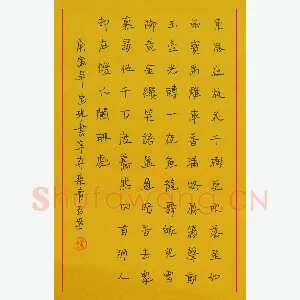 東風夜放花千樹更吹落星如
雨寶馬雕車香滿路鳳簫聲動
玉壺光轉一夜魚龍舞蛾兒雪
柳黃金縷笑語盈盈暗香去眾
裏尋他千百度驀然回首那人
却在燈火闌珊處
庚寅年書辛弃疾青玉案
Shufawang.CN